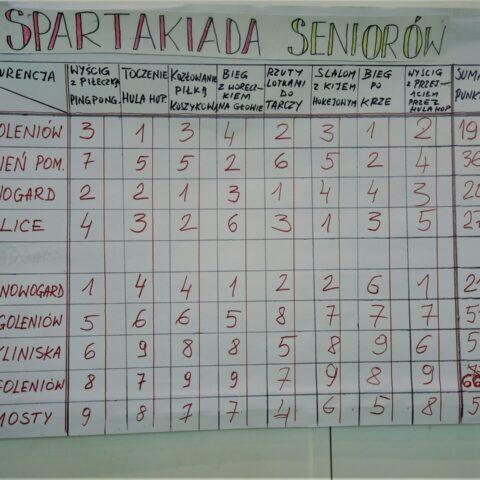 SPARTAKIADA SENIORÓW
URENCJA WYŚCIG Z PIŁECZKĄ PINGPONG. TOCZENIE HULA HOP. KOZŁOWANIE PIŁKĄ KOSZYKOW. BIEG Z WORECZKIEM NA GŁOWIE RZUTY LOTKAMI DO TARCZY SLALOM Z KIJEM HOKEJOWYM BIEG PO KRZE WYŚCIG Z PRZEJŚCIEM PRZEZ HULA HOP SUMA PUNKT
OLENIÓW 3 1 3 4 2 3 1 2 19
IEŃ POM. 7 5 5 2 6 5 2 4 36
NOGARD 2 2 1 3 1 4 4 3 20
LICE 4 3 2 6 3 1 3 5 27
NOWOGARD 1 4 4 1 2 2 6 1 21
GOLENIÓW 5 6 6 5 8 7 7 7 5
YLINISKA 6 9 8 8 5 8 9 6 5
OLENIÓW 8 7 9 9 7 9 8 9 66
MOSTY 9 8 7 7 4 6 5 8 5